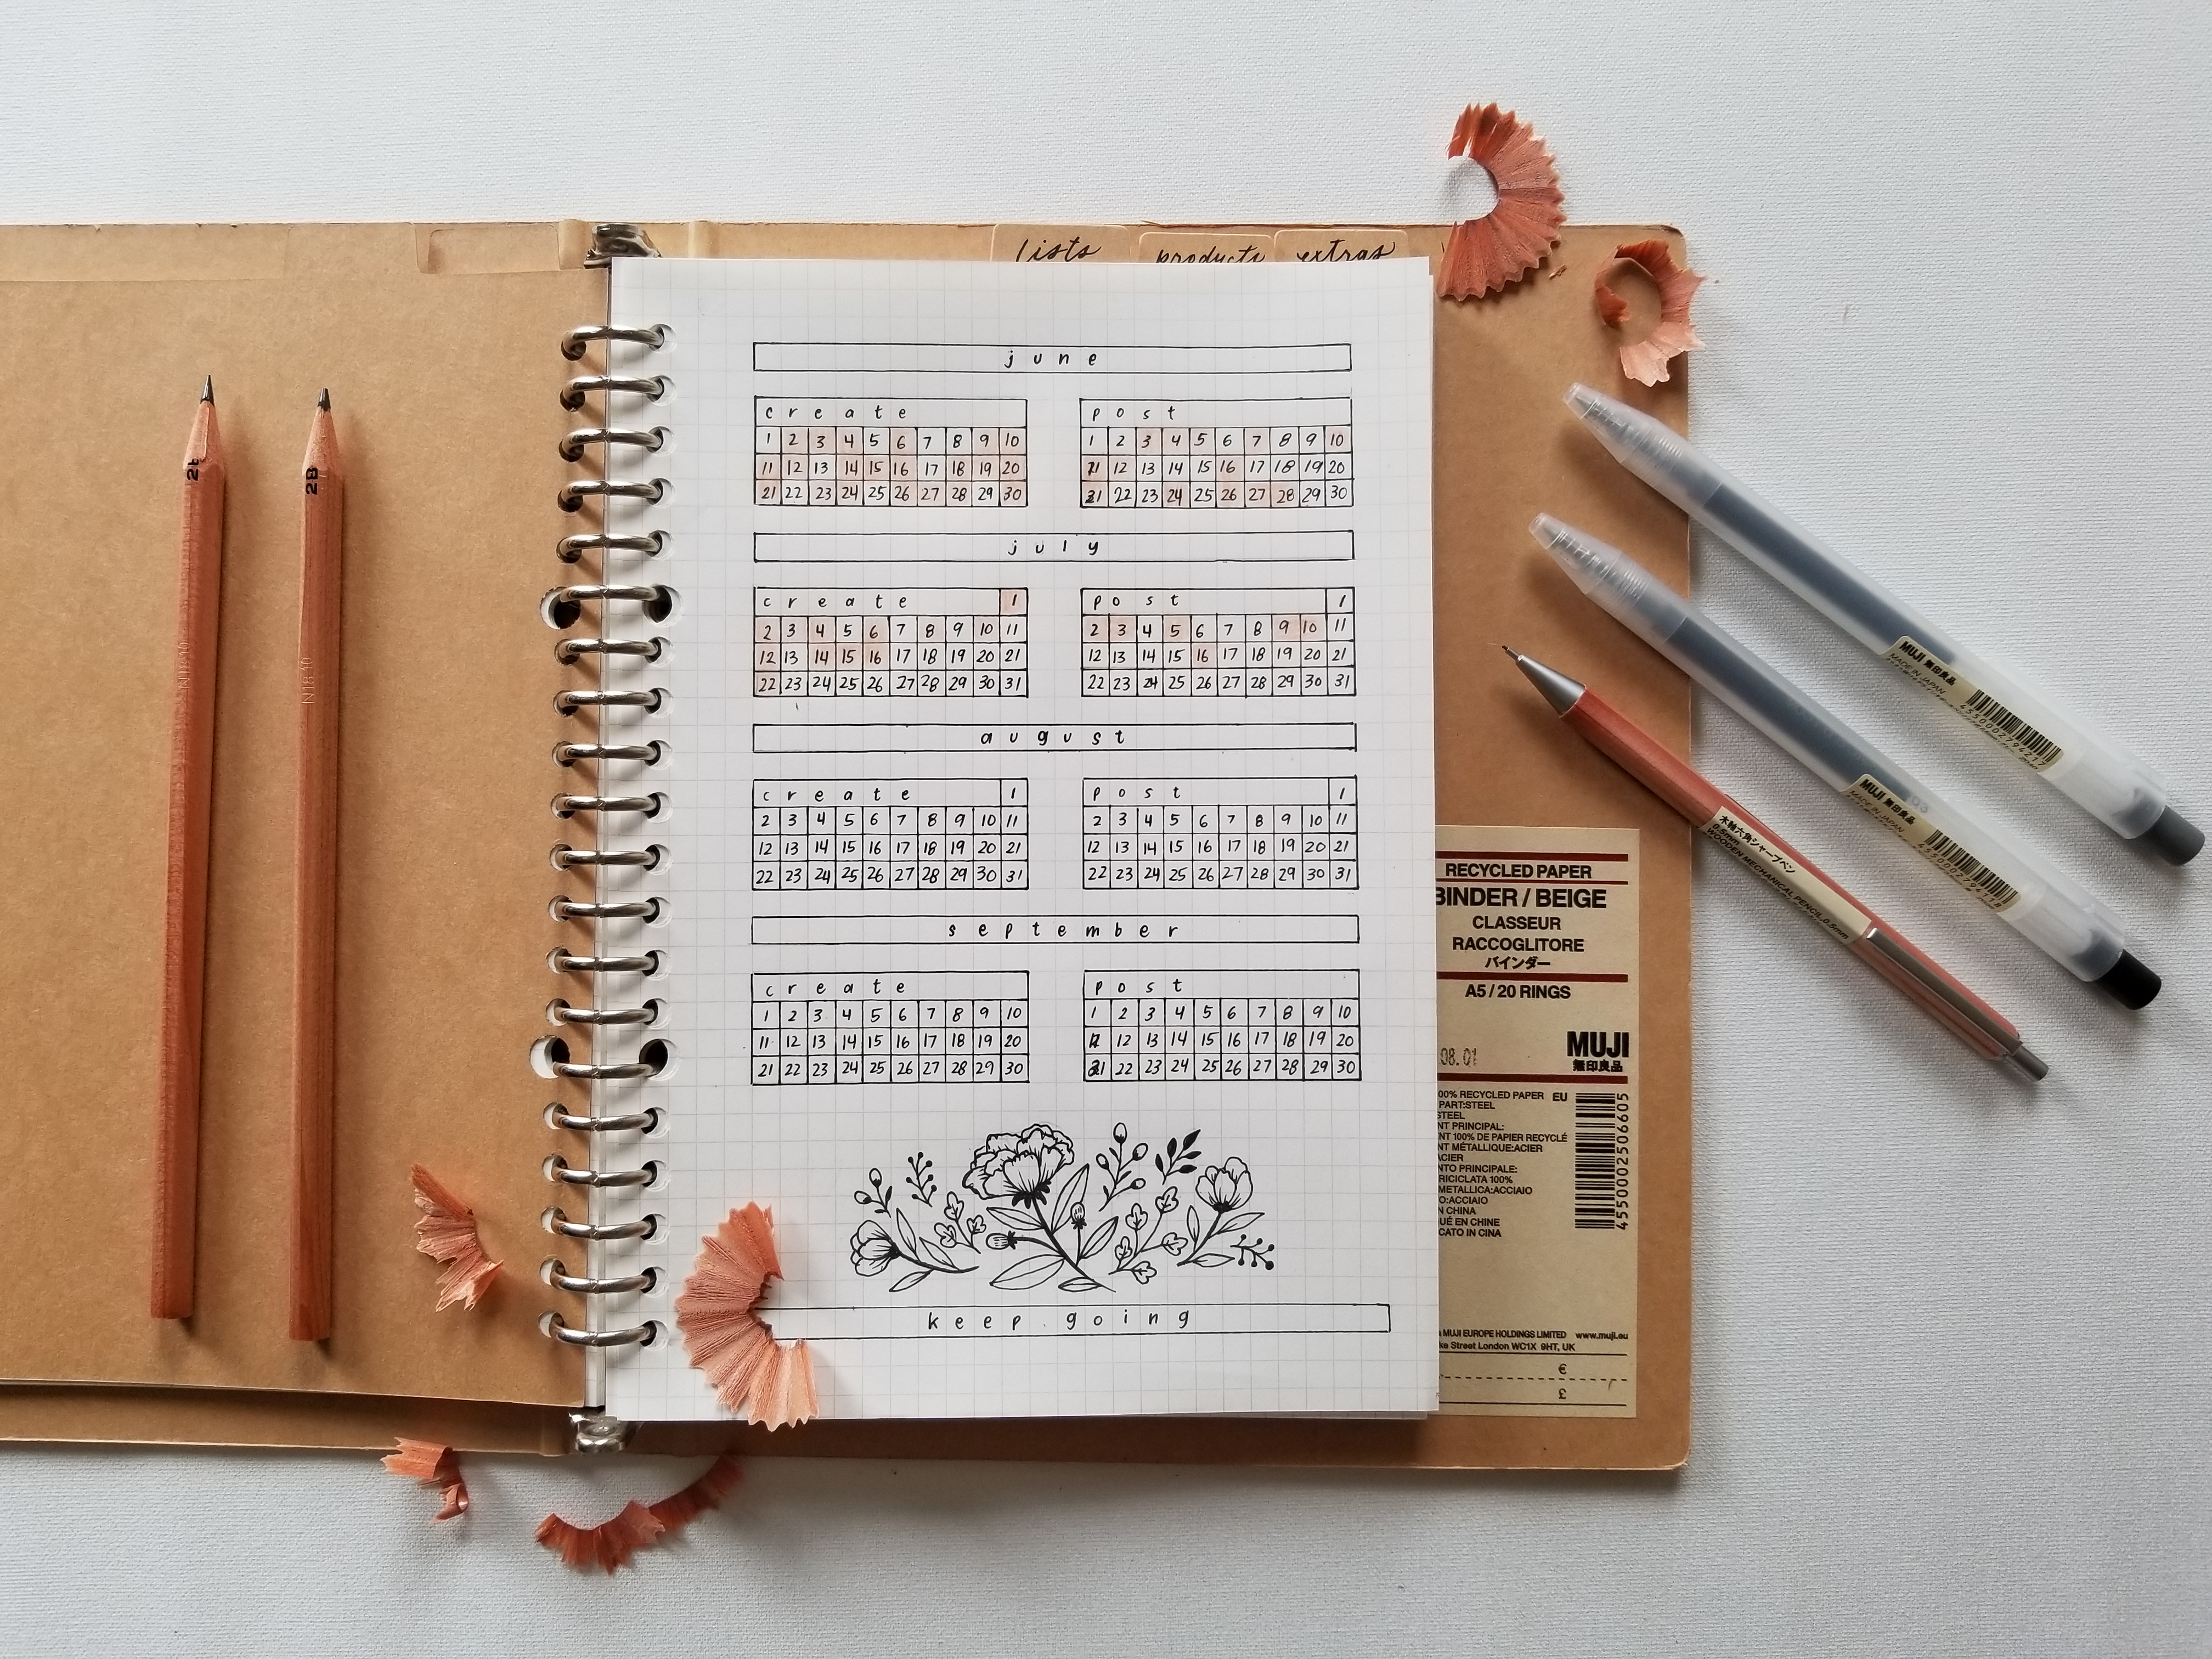 lists products extras
june
create
1 2 3 4 5 6 7 8 9 10
11 12 13 14 15 16 17 18 19 20
21 22 23 24 25 26 27 28 29 30
post
1 2 3 4 5 6 7 8 9 10
11 12 13 14 15 16 17 18 19 20
21 22 23 24 25 26 27 28 29 30
july
create 1
2 3 4 5 6 7 8 9 10 11
12 13 14 15 16 17 18 19 20 21
22 23 24 25 26 27 28 29 30 31
post 1
2 3 4 5 6 7 8 9 10 11
12 13 14 15 16 17 18 19 20 21
22 23 24 25 26 27 28 29 30 31
august
create 1
2 3 4 5 6 7 8 9 10 11
12 13 14 15 16 17 18 19 20 21
22 23 24 25 26 27 28 29 30 31
post 1
2 3 4 5 6 7 8 9 10 11
12 13 14 15 16 17 18 19 20 21
22 23 24 25 26 27 28 29 30 31
september
create
1 2 3 4 5 6 7 8 9 10
11 12 13 14 15 16 17 18 19 20
21 22 23 24 25 26 27 28 29 30
post
1 2 3 4 5 6 7 8 9 10
11 12 13 14 15 16 17 18 19 20
21 22 23 24 25 26 27 28 29 30
keep going
2B
RECYCLED PAPER
BINDER / BEIGE
CLASSEUR
RACCOGLITORE
バインダー
A5 / 20 RINGS
08.01
MUJI
無印良品
100% RECYCLED PAPER EU
PART:STEEL
STEEL
NT PRINCIPAL:
NT 100% DE PAPIER RECYCLÉ
NT MÉTALLIQUE:ACIER
ACIER
NTO PRINCIPALE:
RICICLATA 100%
METALLICA:ACCIAIO
O:ACCIAIO
N CHINA
QUÉ EN CHINE
CATO IN CINA
4550002506605
MUJI EUROPE HOLDINGS LIMITED www.muji.eu
ke Street London WC1X 9HT, UK
€
£
MUJI 無印良品
MADE IN JAPAN
MUJI 無印良品
MADE IN JAPAN
木軸六角シャープペン
0.5mm
WOODEN MECHANICAL PENCIL 0.5mm